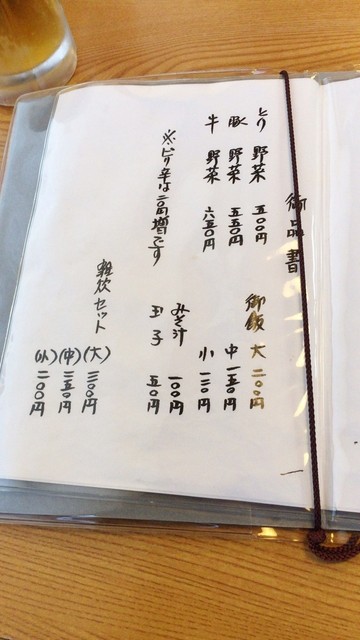 御品書
とり 野菜 五〇〇円
豚 野菜 五五〇円
牛 野菜 六五〇円
※ピリ辛は 増です
御飯 大 二〇〇円
中 一五〇円
小
みそ汁 一〇〇円
玉子 五〇円
雑炊セット
(大) 三〇〇円
(中) 二五〇円
(小) 二〇〇円
一